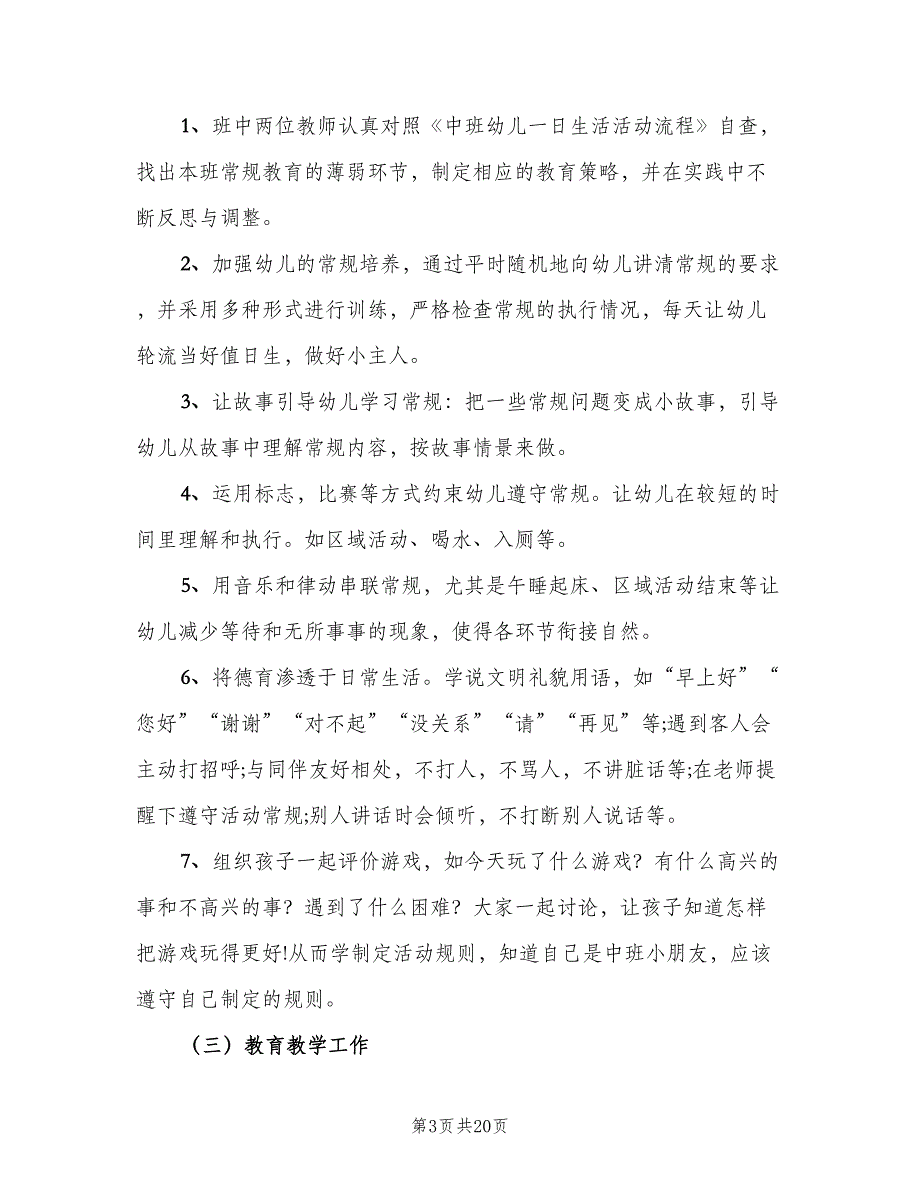 1、班中两位教师认真对照《中班幼儿一日生活活动流程》自查，
找出本班常规教育的薄弱环节，制定相应的教育策略，并在实践中不
断反思与调整。
2、加强幼儿的常规培养，通过平时随机地向幼儿讲清常规的要求
，并采用多种形式进行训练，严格检查常规的执行情况，每天让幼儿
轮流当好值日生，做好小主人。
3、让故事引导幼儿学习常规：把一些常规问题变成小故事，引导
幼儿从故事中理解常规内容，按故事情景来做。
4、运用标志，比赛等方式约束幼儿遵守常规。让幼儿在较短的时
间里理解和执行。如区域活动、喝水、入厕等。
5、用音乐和律动串联常规，尤其是午睡起床、区域活动结束等让
幼儿减少等待和无所事事的现象，使得各环节衔接自然。
6、将德育渗透于日常生活。学说文明礼貌用语，如“早上好”“
您好”“谢谢”“对不起”“没关系”“请”“再见”等;遇到客人会
主动打招呼;与同伴友好相处，不打人，不骂人，不讲脏话等;在老师提
醒下遵守活动常规;别人讲话时会倾听，不打断别人说话等。
7、组织孩子一起评价游戏，如今天玩了什么游戏？有什么高兴的
事和不高兴的事？遇到了什么困难？大家一起讨论，让孩子知道怎样
把游戏玩得更好!从而学制定活动规则，知道自己是中班小朋友，应该
遵守自己制定的规则。
（三）教育教学工作
第3页共20页